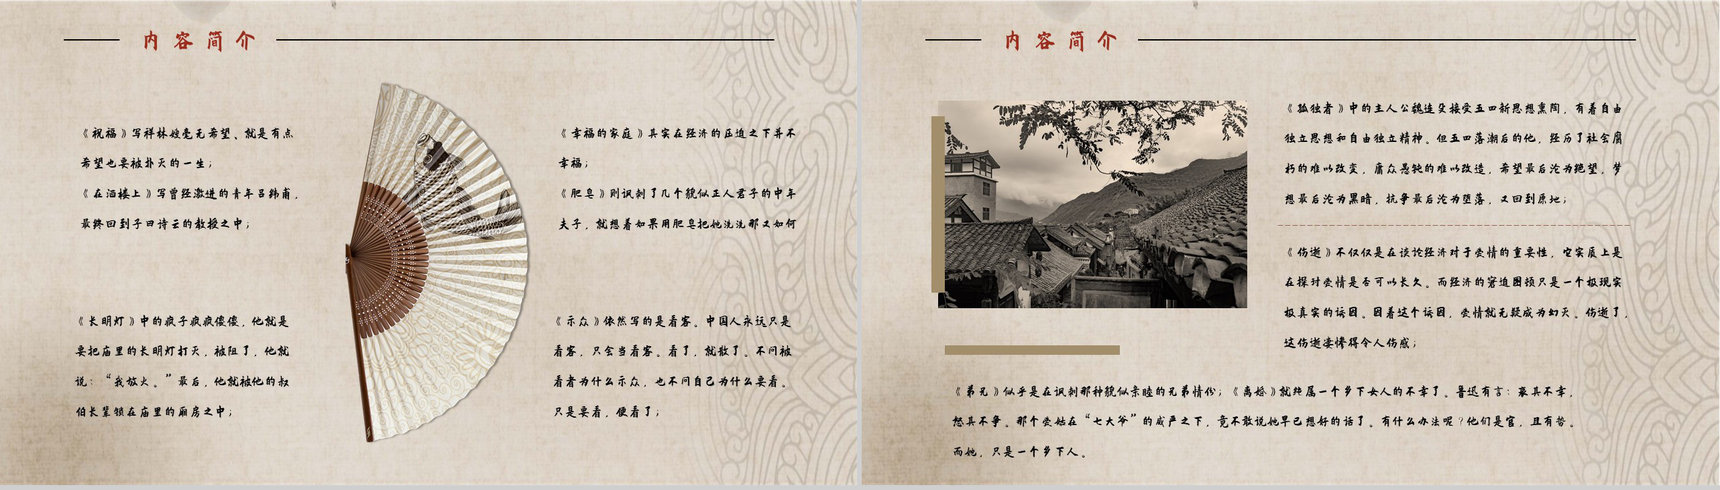 内容简介
《祝福》写祥林嫂毫无希望、就是有点
希望也要被扑灭的一生；
《在酒楼上》写曾经激进的青年吕纬甫，
最终回到子曰诗云的教授之中；
《长明灯》中的疯子疯疯傻傻，他就是
要把庙里的长明灯打灭，被阻了，他就
说：“我放火。”最后，他就被他的叔
伯长辈锁在庙里的厢房之中；
《幸福的家庭》其实在经济的压迫之下并不
幸福；
《肥皂》则讽刺了几个貌似正人君子的中年
夫子，就想着如果用肥皂把她洗洗那又如何
《示众》依然写的是看客。中国人永远只是
看客，只会当看客。看了，就散了。不问被
看者为什么示众，也不问自己为什么要看。
只是要看，便看了；
内容简介
《孤独者》中的主人公魏连殳接受五四新思想熏陶，有着自由
独立思想和自由独立精神。但五四落潮后的他，经历了社会腐
朽的难以改变，庸众愚钝的难以改造，希望最后沦为绝望，梦
想最后沦为黑暗，抗争最后沦为堕落，又回到原地；
《伤逝》不仅仅是在谈论经济对于爱情的重要性，它实质上是
在探讨爱情是否可以长久。而经济的窘迫困顿只是一个极现实
极真实的诱因。因着这个诱因，爱情就无疑成为幻灭。伤逝了，
这伤逝凄惨得令人伤感；
《弟兄》似乎是在讽刺那种貌似亲睦的兄弟情份；《离婚》就纯属一个乡下女人的不幸了。鲁迅有言：哀其不幸，
怒其不争。那个爱姑在“七大爷”的威严之下，竟不敢说她早已想好的话了。有什么办法呢？他们是官，且有势。
而她，只是一个乡下人。